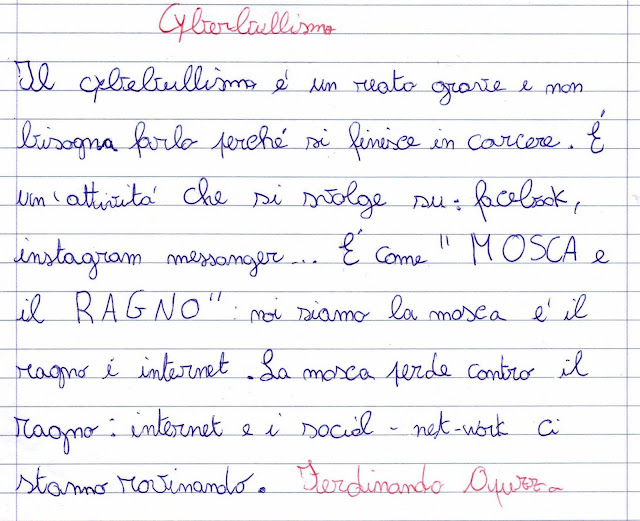 Cyberbullismo
Il cyberbullismo é un reato grave e non
bisogna farlo perché si finisce in carcere. É
un'attivitá che si svolge su: facebook,
instagram messanger... É come "MOSCA e
il RAGNO": noi siamo la mosca e' il
ragno é internet. La mosca perde contro il
ragno: internet e i social - net-work ci
stanno rovinando. Ferdinando